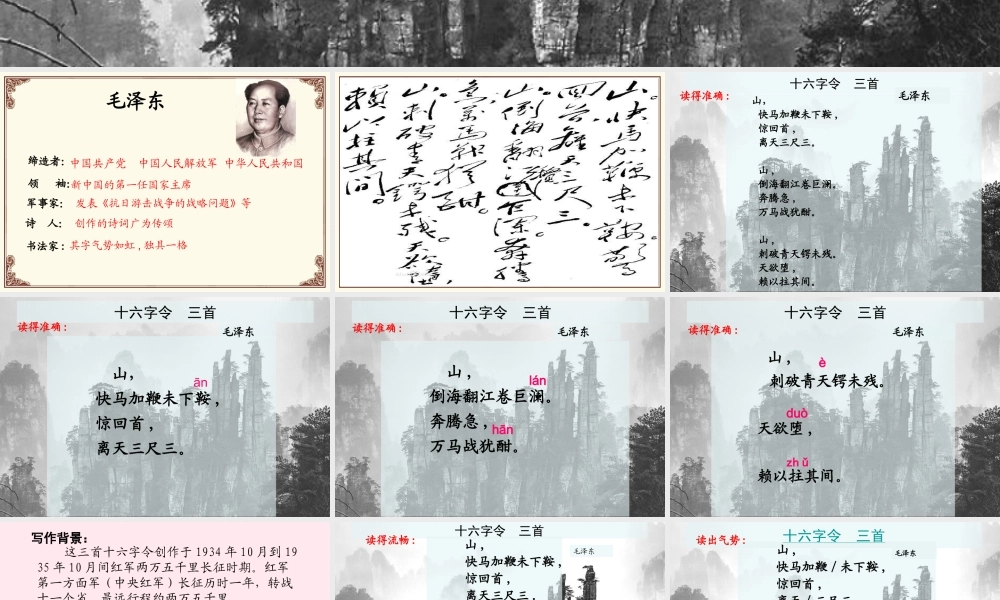 毛泽东
缔造者：中国共产党 中国人民解放军 中华人民共和国
领 袖：新中国的第一任国家主席
军事家： 发表《抗日游击战争的战略问题》等
诗 人： 创作的诗词广为传颂
书法家：其字气势如虹，独具一格
山。快马加鞭未下鞍。惊
回首，离天三尺三。
山。倒海翻江卷巨澜。奔腾
急，万马战犹酣。
山。刺破青天锷未残。天欲堕，
赖以拄其间。
十六字令 三首
读得准确：
毛泽东
山，
快马加鞭未下鞍，
惊回首，
离天三尺三。
山，
倒海翻江卷巨澜。
奔腾急，
万马战犹酣。
山，
刺破青天锷未残。
天欲堕，
赖以拄其间。
十六字令 三首
读得准确：
毛泽东
山，
ān
快马加鞭未下鞍，
惊回首，
离天三尺三。
十六字令 三首
读得准确：
毛泽东
山，
lán
倒海翻江卷巨澜。
奔腾急，
hān
万马战犹酣。
十六字令 三首
读得准确：
毛泽东
山，
è
刺破青天锷未残。
duò
天欲堕，
zhǔ
赖以拄其间。
写作背景：
这三首十六字令创作于1934年10月到19
35年10月间红军两万五千里长征时期。红军
第一方面军（中央红军）长征历时一年，转战
十一个省，最远行程约两万五千里
十六字令 三首
读得流畅：
毛泽东
山，
快马加鞭未下鞍，
惊回首，
离天三尺三。
十六字令 三首
读出气势：
毛泽东
山，
快马加鞭/未下鞍，
惊回首，
离天/三尺三